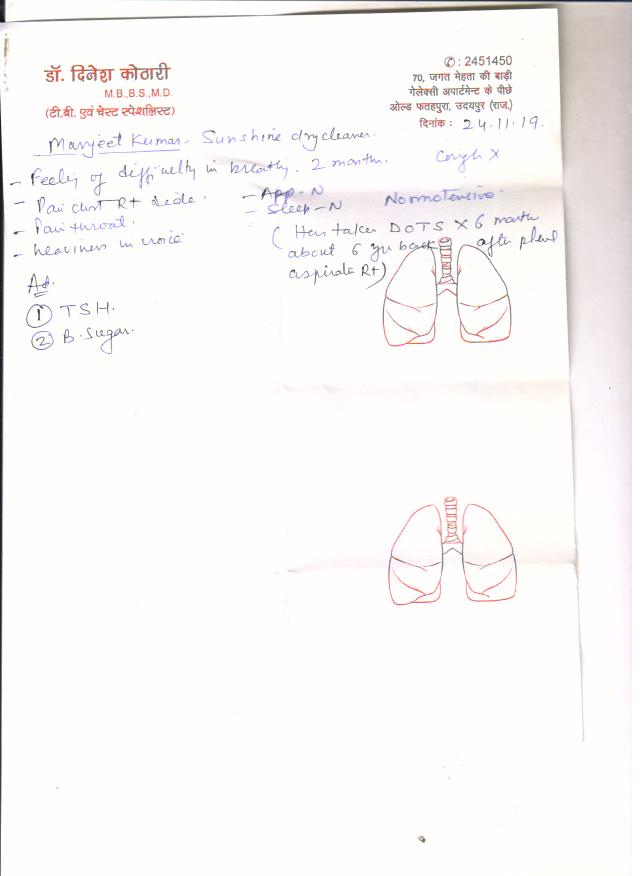 डॉ. दिनेश कोठारी
M.B.,B.S.,M.D.
(टी.बी. एवं चेस्ट स्पेशलिस्ट)
✆: 2451450
70, जगत मेहता की बाड़ी
गेलेक्सी अपार्टमेन्ट के पीछे
ओल्ड फतहपुरा, उदयपुर (राज.)
दिनांक : 24.11.19.
Manjeet Kumar. Sunshine drycleaner.
- Feeling of difficulty in breathg. 2 months. Cough X
- Pain chest Rt side. - App - N Normotensive.
- Pain throat. - Sleep - N
- heaviness in voice
(Has taken DOTS X 6 month
about 6 yr back after pleural
aspiration Rt)
Ad.
① TSH.
② B. Sugar.